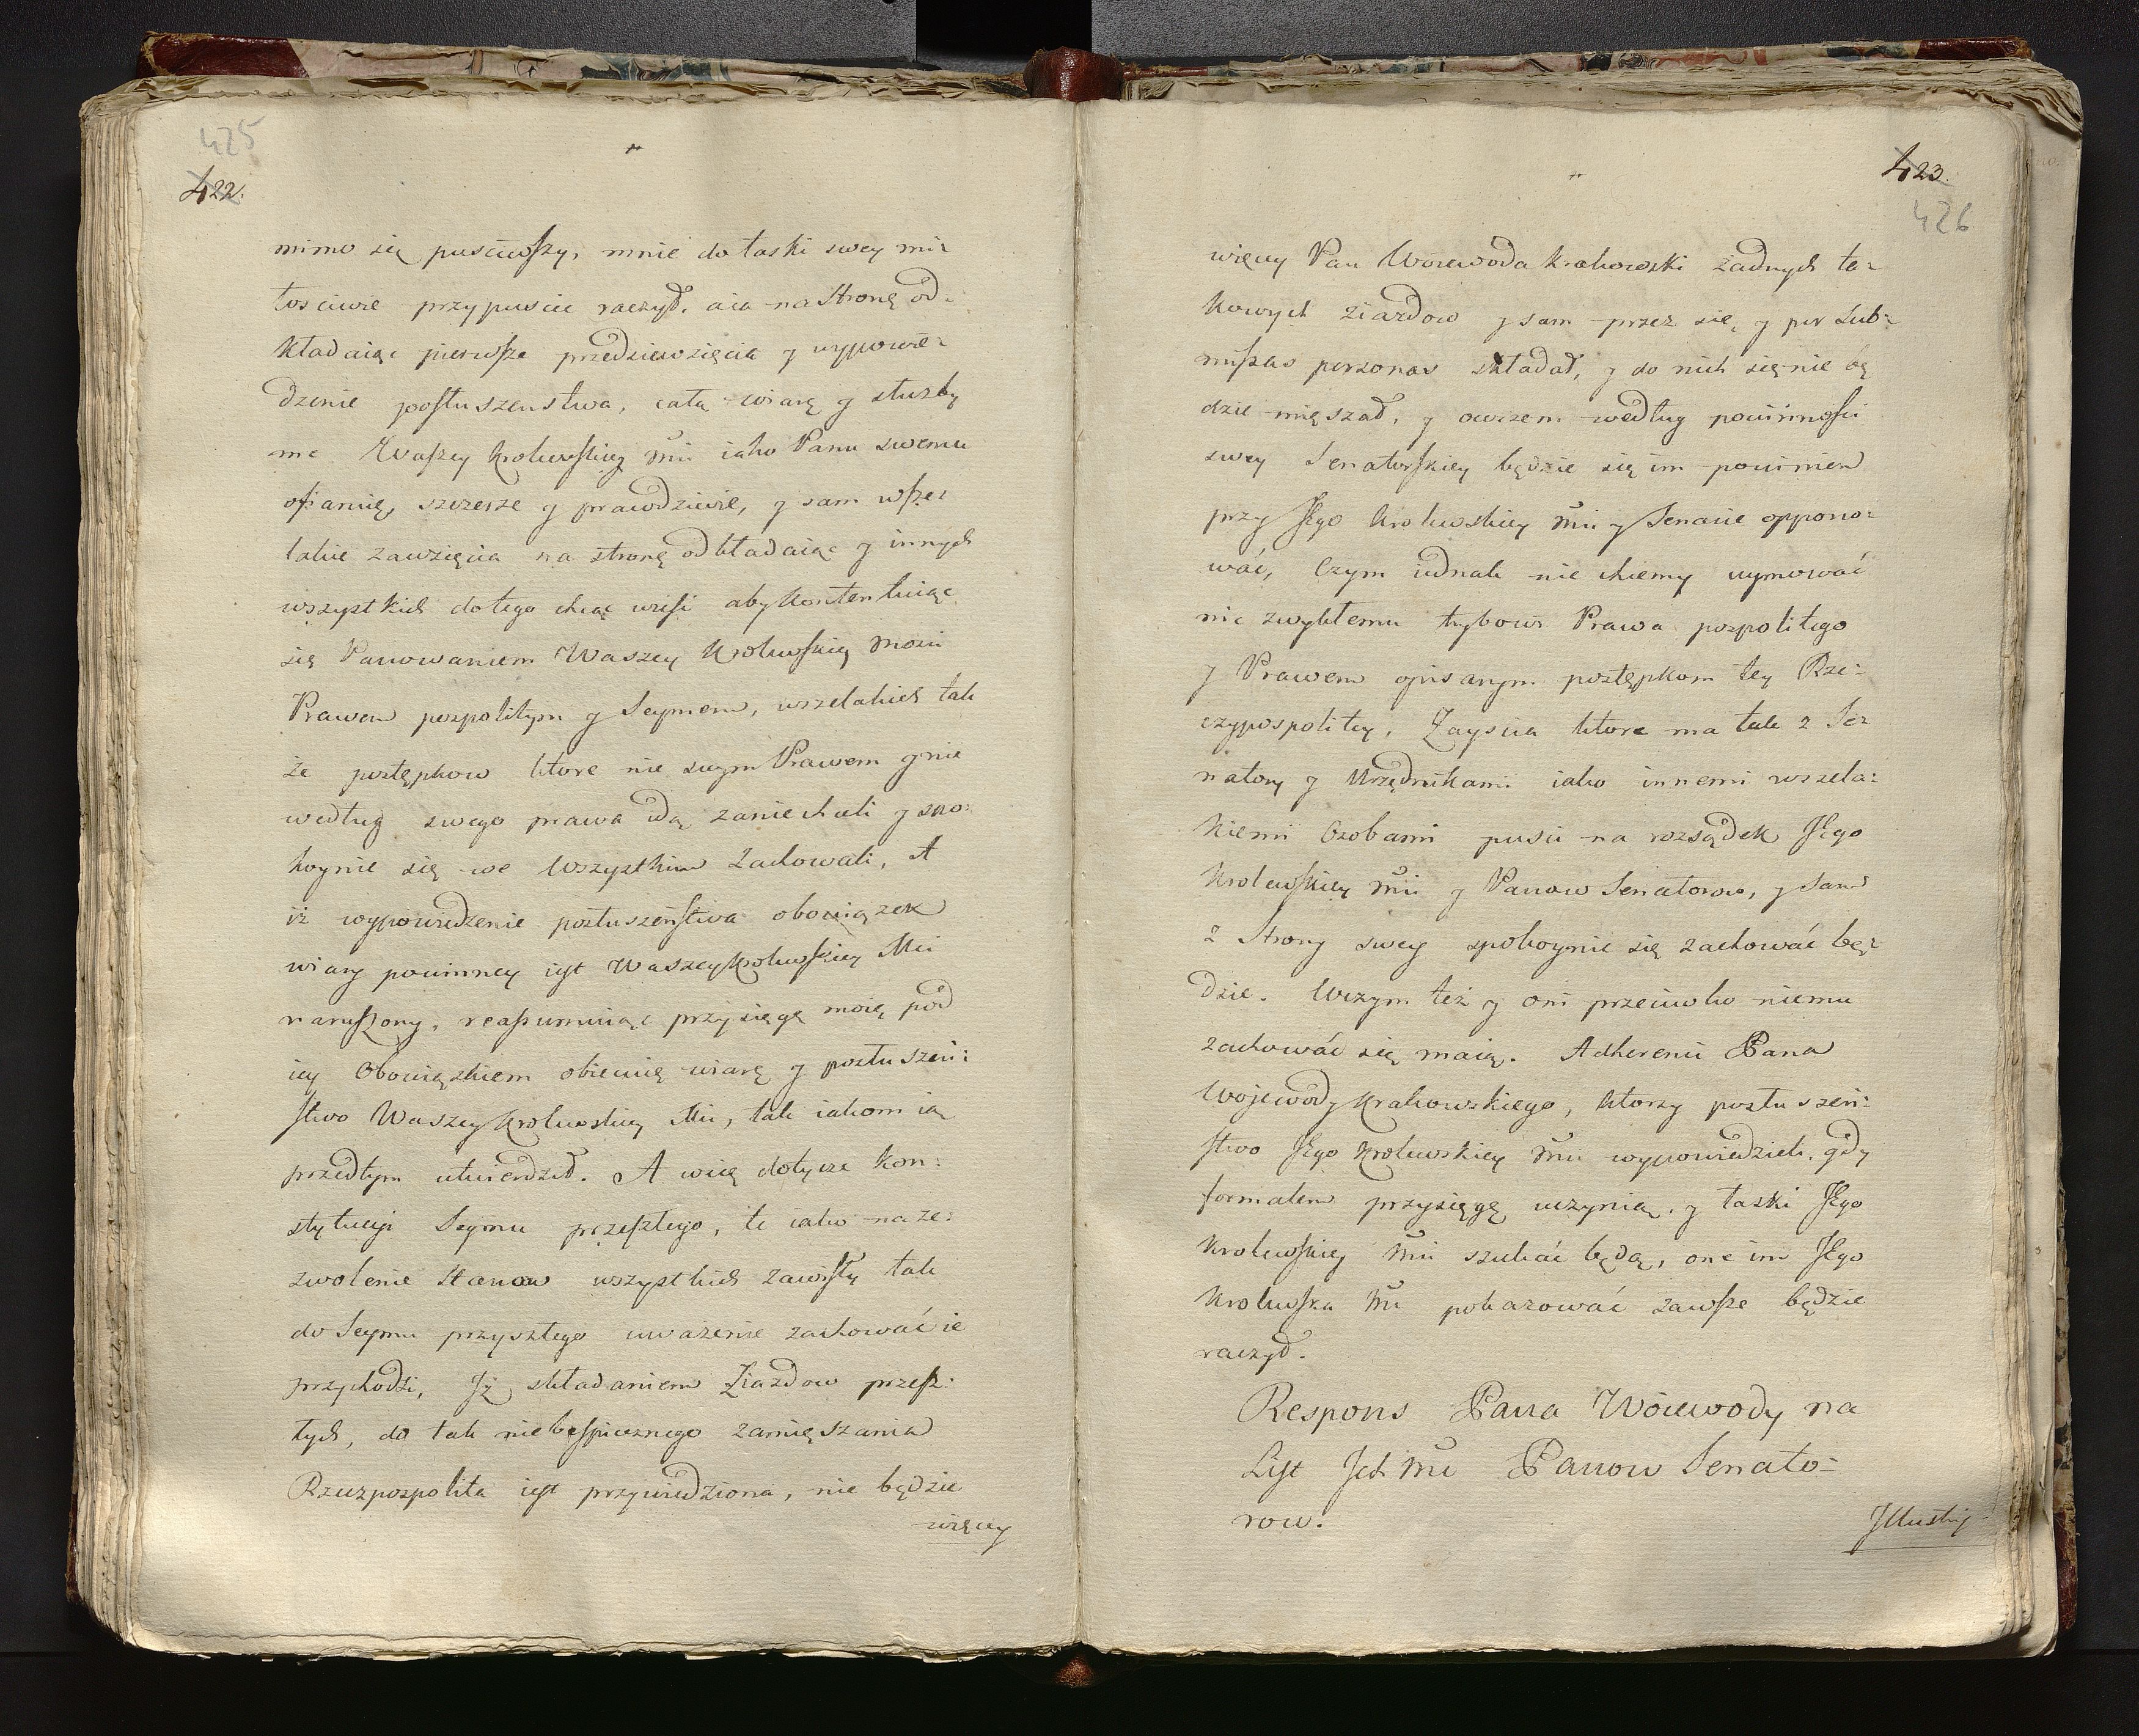 425
422.
mimo się pusciwszy, mnie do łaski swey mi:
łosciwie przypuscic raczył. a ia na stronę od:
kładaiąc pierwsze przedsiewzięcia y wypowie:
dzenie posłuszenstwa, całą wiarę y służby
me Waszey Krolewskiey Mci iako Panu swemu
ofiaruię, szczerze y prawdziwie, y sam wsze:
lakie zawzięcia na stronę odkładaiąc y innych
wszystkich do tego chcąc wiesć aby kontentuiąc
się Panowaniem Waszey Krolewskiey Mości
Prawem pospolitym y Seymem, wszelakich tak
że postępkow ktore nie swym Prawem y nie
według swego prawa idą zaniechali y spo:
koynie się we wszystkim zachowali, A
iż wypowiedzenie posłuszeństwa obowiązek
wiary powinney iest Waszey Krolewskiey Mci
naruszony, reassumuiąc przysięgę moię pod
iey Obowiązkiem obiecuię wiarę y posłuszeń:
stwo Waszey Krolewskiey Mci, tak iakom ią
przedtym utwierdził. A wię dotycze Kon:
stytucyi Seymu przeszłego, te iako na ze:
zwolenie Stanow wszystkich zawisły tak
do Seymu przyszłego uważenie zachować ie
przychodzi, Jż składaniem Ziazdow przesz:
łych, do tak niebespiecznego zamięszania
Rzeczpospolita iest przywiedziona, nie będzie
więcey
423.
426
więcey Pan Woiewoda Krakowski żadnych ta:
kowych ziazdow y sam przez się y per Sub:
missas personas składał, y do nich się nie bę
dzie mięszał, y owszem według powinności
swey Senatorskiey będzie się im powinien
przy Jego Krolewskiey Mci y Senacie oppono:
wać, Czym iednak nie chcemy uymować
nic zwykłemu trybowi Prawa pospolitego
y Prawem opisanym postępkom tey Rze:
czypospolitey, Zayscia ktore ma tak z Se:
natory y Urzędnikami iako innemi wszela:
kiemi Osobami pusci na rozsądek JEgo
Krolewskiey Mci y Panow Senatorow, y sam
z Strony swey spokoynie się zachować bę:
dzie. Wczym też y oni przeciwko niemu
zachować się maią. Adherenci Pana
Wojewody Krakowskiego, ktorzy posłuszeń:
stwo JEgo Krolewskiey Mci wypowiedzieli, gdy
formalem przysięgę uczynią, y łaski JEgo
Krolewskiey Mci szukać będą, one im JEgo
Krolewska Mć pokazować zawsze będzie
raczył.
Respons Pana Wòiewody na
List Jch Mć Panow Senato:
row.
Jllustri: